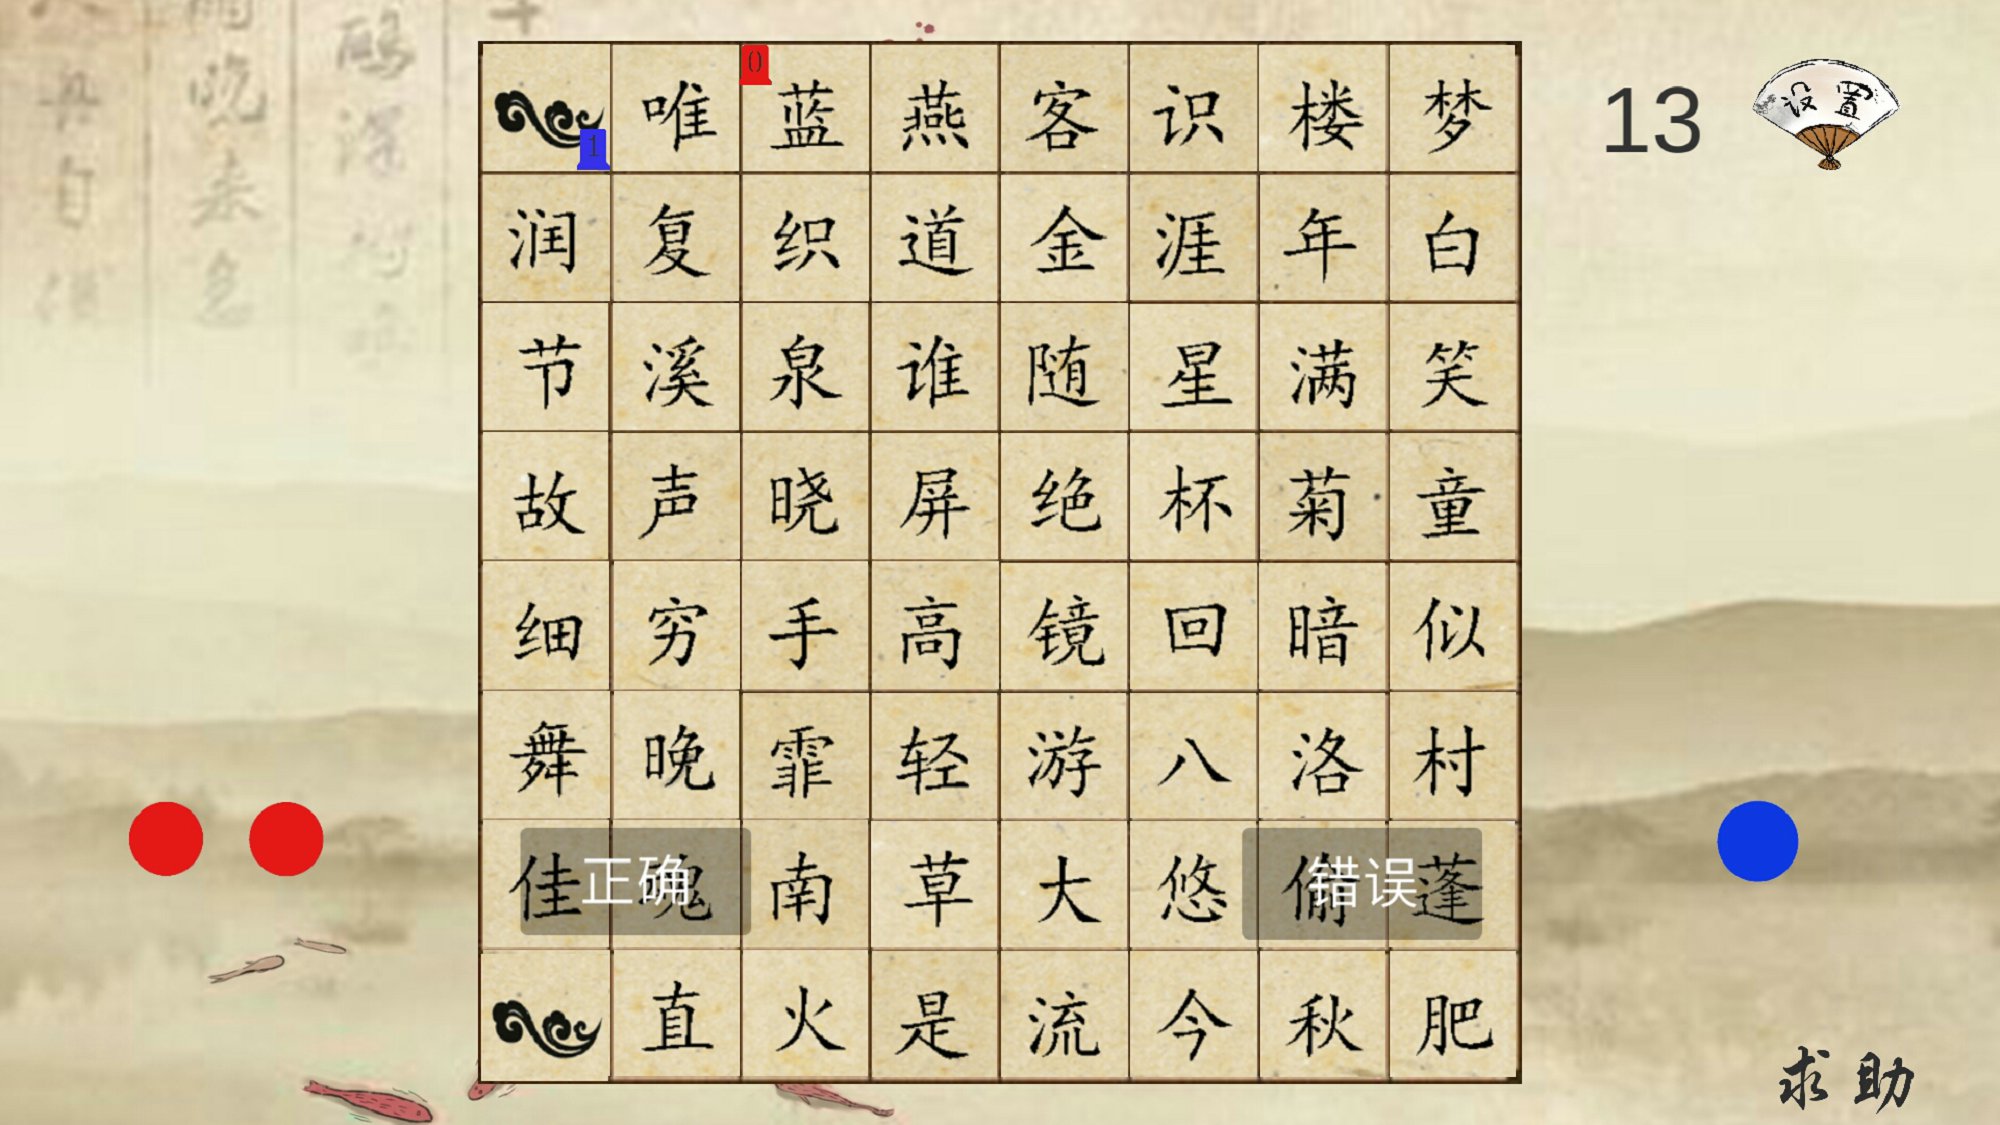 0
唯蓝燕客识楼梦
13
设置
1
润复织道金涯年白
节溪泉谁随星满笑
故声晓屏绝杯菊童
细穷手高镜回暗似
舞晚霏轻游八洛村
佳魂南草大悠偷蓬
正确
错误
直火是流今秋肥
求助